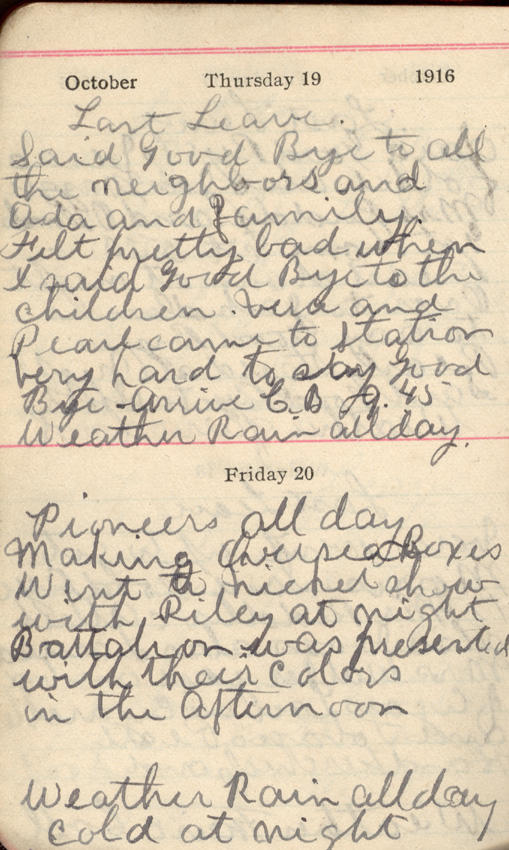 October Thursday 19 1916
Last Leave.
Said Good Bye to all
the neighbors and
Ada and Family.
Felt pretty bad when
I said Good Bye to the
children. Vera and
Pearl came to station
very hard to say Good
Bye-arrive C.B 9.45
Weather Rain all day.
Friday 20
Pioneers all day
Making Oversea Boxes
Went to nickel show
with Riley at night
Battalion was presented
with their colors
in the afternoon
Weather Rain all day
cold at night